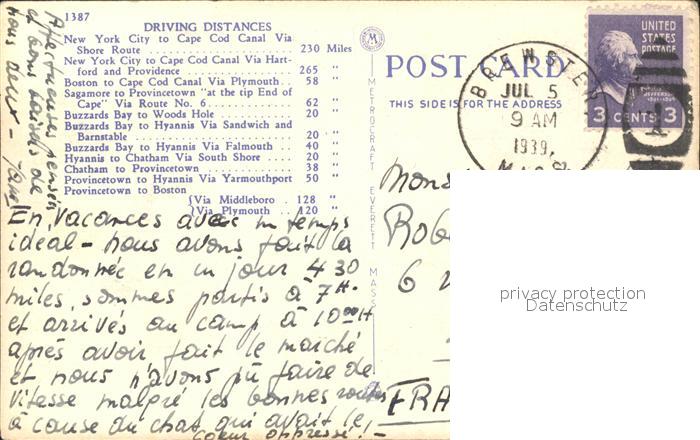 1387
DRIVING DISTANCES
New York City to Cape Cod Canal Via
Shore Route 230 Miles
New York City to Cape Cod Canal Via Hart-
ford and Providence 265 "
Boston to Cape Cod Canal Via Plymouth 58 "
Sagamore to Provincetown "at the tip End of
Cape" Via Route No. 6 62 "
Buzzards Bay to Woods Hole 20 "
Buzzards Bay to Hyannis Via Sandwich and
Barnstable 20 "
Buzzards Bay to Hyannis Via Falmouth 40 "
Hyannis to Chatham Via South Shore 20 "
Chatham to Provincetown 38 "
Provincetown to Hyannis Via Yarmouthport 50 "
Provincetown to Boston
{Via Middleboro 128 "
{Via Plymouth 120 "
En vacances avec un temps
idéal - nous avons fait la
randonnée en un jour 430
miles, sommes partis à 7H.
et arrivés au camp à 10ººH
après avoir fait le marché
et nous n'avons pû faire de
vitesse malgré les bonnes routes
à cause du chat qui avait le
coeur oppressé! -
Affectueuses pensées
et bons baisers de
nous deux -
METROCRAFT EVERETT MASS
M
POST CARD
THIS SIDE IS FOR THE ADDRESS
BREWSTER
JUL 5
9 AM
1939
MASS
UNITED
STATES
POSTAGE
3 CENTS 3
Mons
Rob
6
FRA
privacy protection
Datenschutz